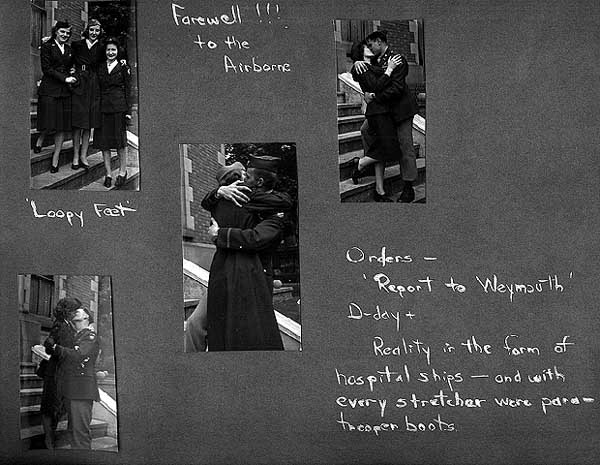 Farewell !!!
to the
Airborne
"Loopy Feet"
Orders —
"Report to Weymouth"
D-day +
Reality in the form of
hospital ships — and with
every stretcher were para-
trooper boots.